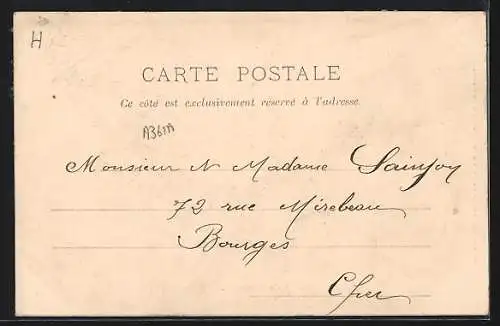 H
CARTE POSTALE
Ce côté est exclusivement réservé à l'adresse.
A361A
Monsieur N Madame Sainjon
72 rue Mirebeau
Bourges
Cher